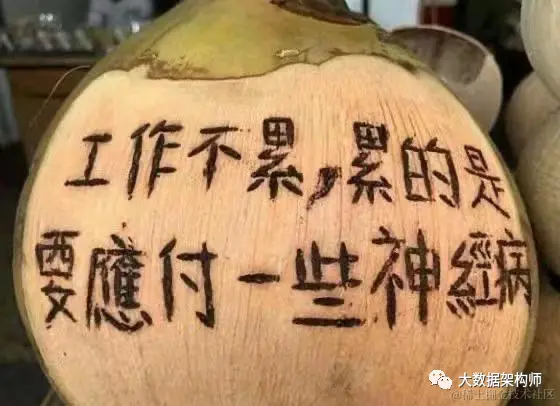 工作不累,累的是
要應付一些神經病
大数据架构师
@稀土掘金技术社区